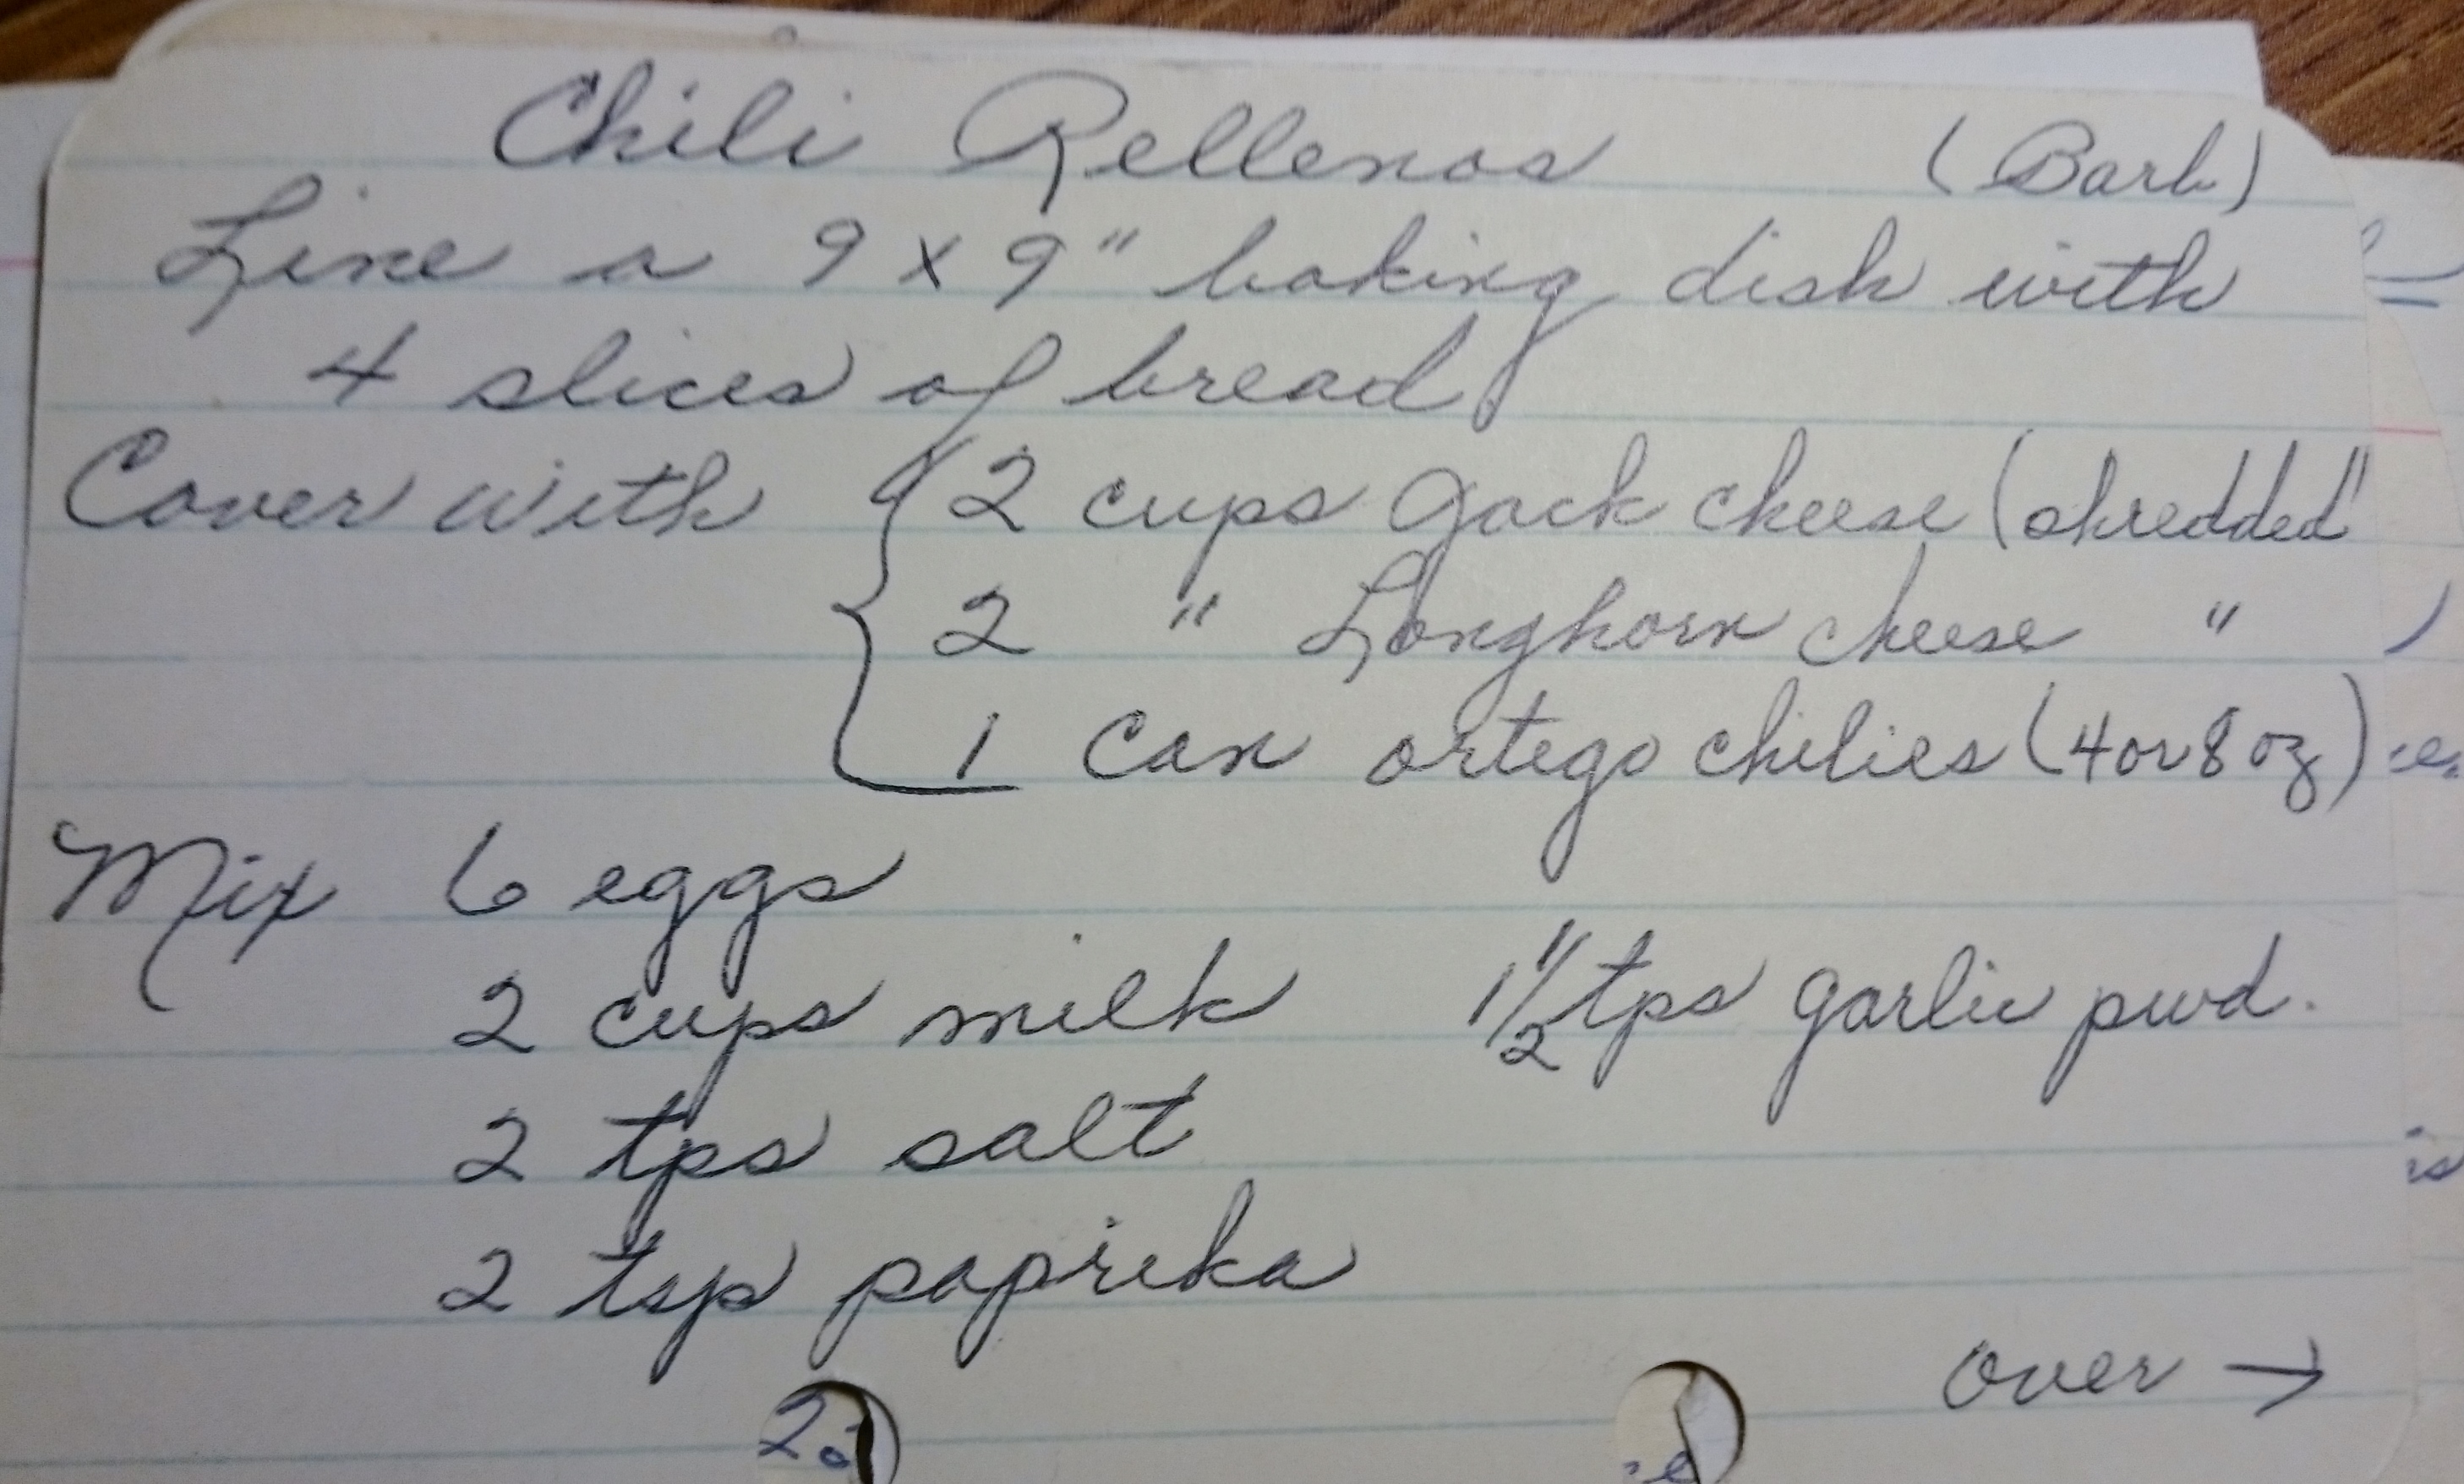 Chili Rellenos (Barb)
Line a 9 x 9" baking dish with
4 slices of bread
Cover with { 2 cups Jack cheese (shredded
2 " Longhorn cheese " )
1 can ortego chilies (4 or 8 oz)
Mix 6 eggs
2 cups milk 1 1/2 tps garlic pwd.
2 tps salt
2 tsp paprika
over →